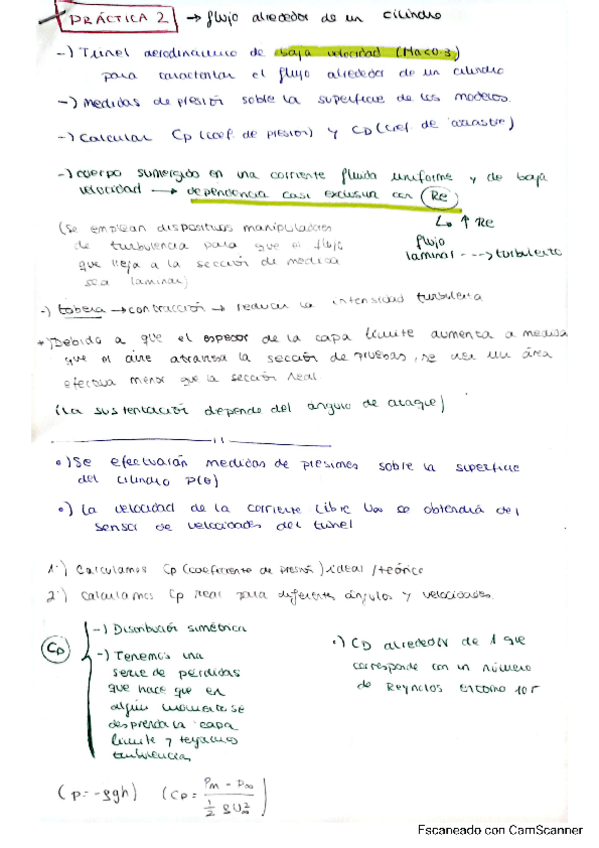 PRÁCTICA 2 → flujo alrededor de un cilindro
-) Tunel aerodinamico de baja velocidad (Ma<0.3)
para caracterizar el flujo alrededor de un cilindro
-) Medidas de presión sobre la superficie de los modelos.
-) Calcular Cp (coef. de presion) y CD (coef. de arrastre)
-) cuerpo sumergido en una corriente fluida uniforme y de baja
velocidad → dependencia casi exclusiva con Re
↳ ↑ Re
(Se emplean dispositivos manipuladores
de turbulencia para que el flujo
que llega a la sección de medida
sea laminar)
flujo
laminar ---→ turbulento
-) tobera → contracción → reducir la intensidad turbulenta
Debido a que el espesor de la capa límite aumenta a medida
que el aire atraviesa la sección de pruebas, se usa un área
efectiva menor que la sección real.
(La sustentación depende del angulo de ataque)
•) Se efectuarán medidas de presiones sobre la superficie
del cilindro P(θ)
•) La velocidad de la corriente libre U∞ se obtendrá del
sensor de velocidades del tunel
1º) Calculamos Cp (coeficiente de presión) ideal / teórico
2º) Calculamos Cp real para diferentes ángulos y velocidades.
-) Distribución simétrica
-) Tenemos una
serie de perdidas
que hace que en
algún momento se
desprenda la capa
límite y tengamos
turbulencia
•) CD alrededor de 1 que
corresponde con un número
de Reynolds entorno 10⁵
(p = -ρgh) (Cp = (Pm - P∞) / (1/2 ρU²∞))
Escaneado con CamScanner